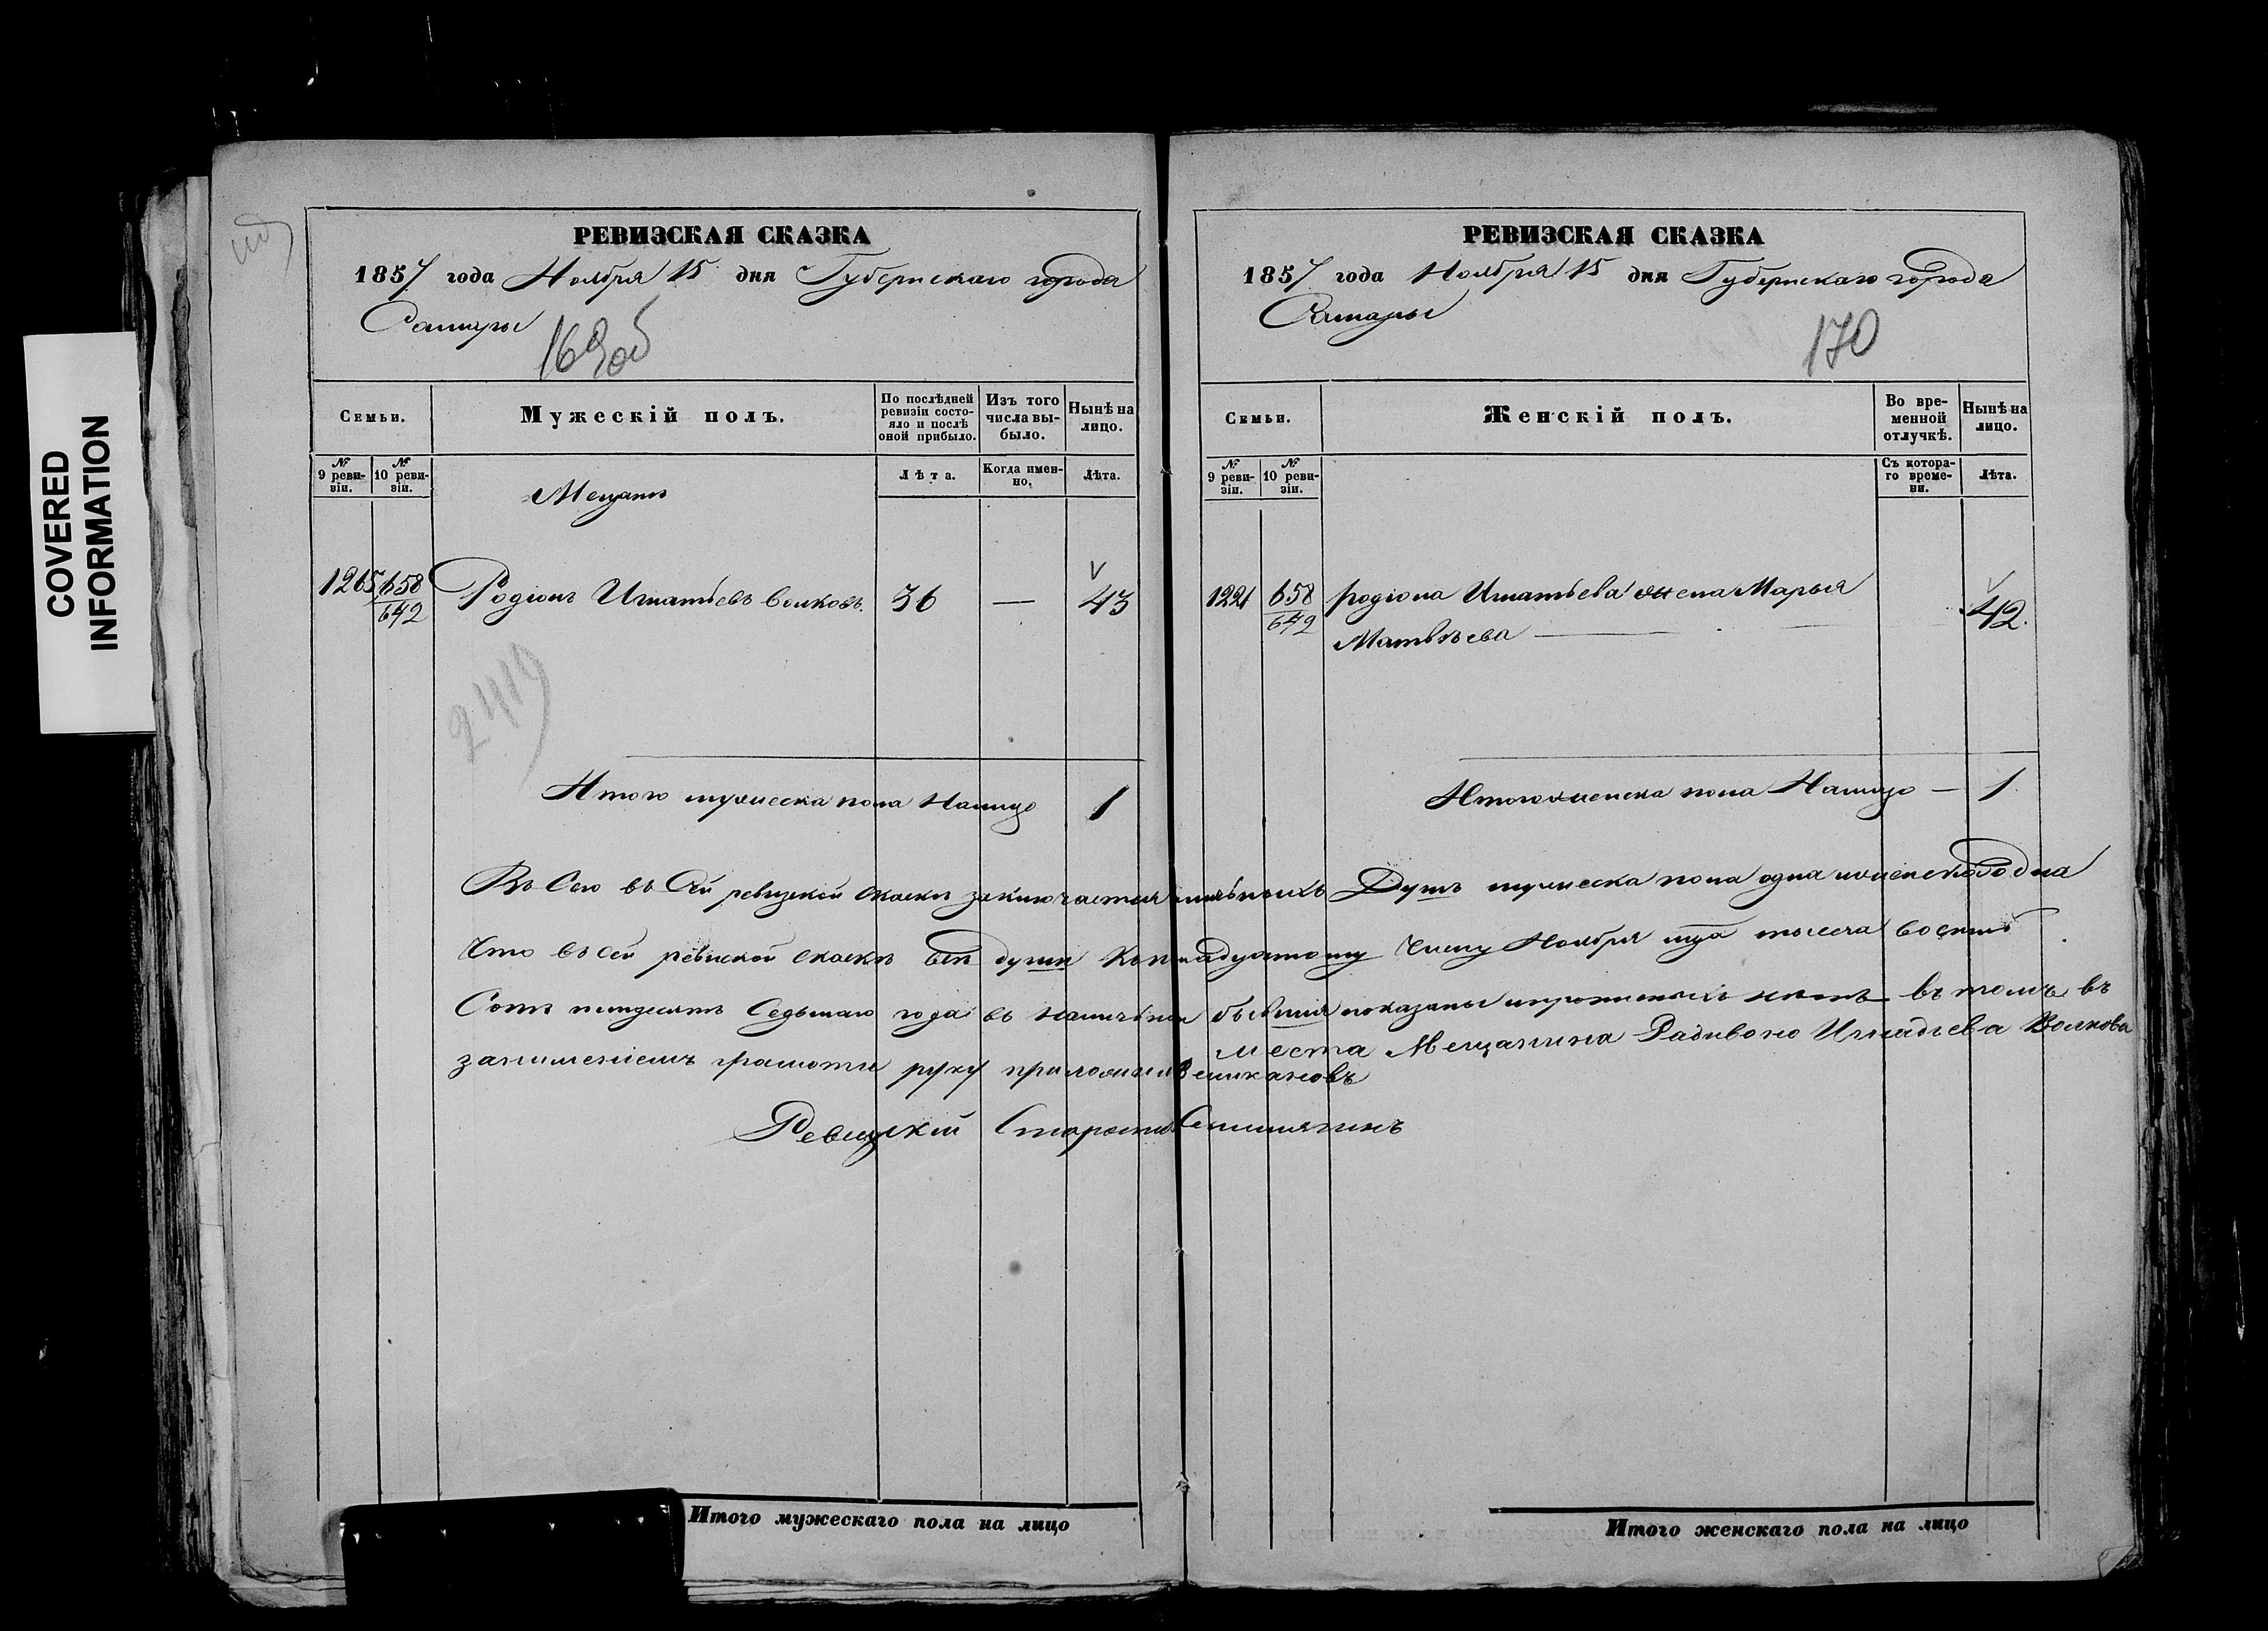 COVERED
INFORMATION
РЕВИЗСКАЯ СКАЗКА
1857 года Ноября 15 дня Губернскаго города
Самары
169 об
Семьи.
Мужескій полъ.
По послѣдней ревизіи состояло и послѣ оной прибыло.
Изъ того числа выбыло.
Нынѣ на лицо.
№ 9 ревизіи.
№ 10 ревизіи.
Лѣта.
Когда именно.
Лѣта.
Мещанъ
1265 658 Родіонъ Игнатьевъ Волковъ. 36 — 43
642
2419
Итого мужеска пола Налицо 1
РЕВИЗСКАЯ СКАЗКА
1857 года Ноября 15 дня Губернскаго города
Самары
170
Семьи.
Женскій полъ.
Во временной отлучкѣ.
Нынѣ на лицо.
№ 9 ревизіи.
№ 10 ревизіи.
Съ котораго времени.
Лѣта.
1221 658 родіона Игнатьева жена Марья
642 Матвѣева — 42.
Итого женска пола Налицо — 1
Въ Сей ревизкой скаски заключается Душъ мужеска пола одна и женска одна
Что въ сей ревиской скаскѣ всѣ души Числу Ноября тысеча восемь
Сотъ пендесятъ Седьмаго года въ показаны и нѣтъ въ томъ въ
места Мещанина Радивоно Игнадьева Волкова
грамоти руку приложилъ Великановъ
Ревизкій Староста
Итого мужескаго пола на лицо
Итого женскаго пола на лицо